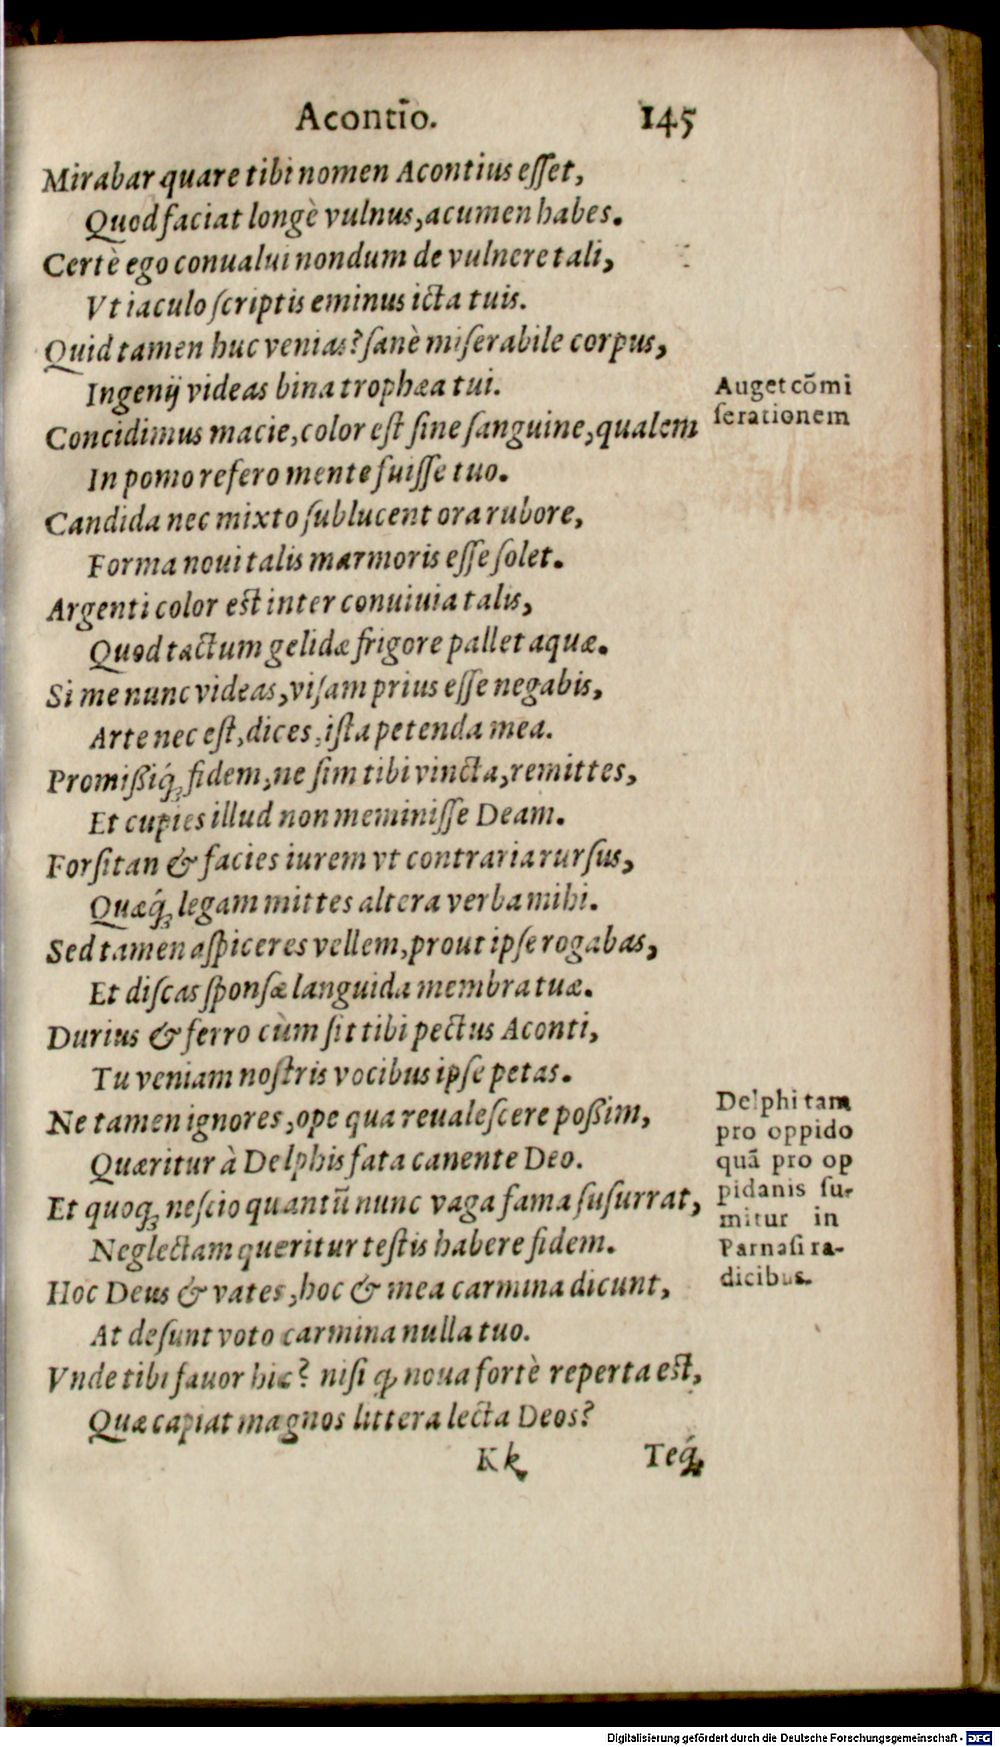 Acontio. 145
Mirabar quare tibi nomen Acontius eſſet,
Quod faciat longè vulnus, acumen habes.
Certè ego conualui nondum de vulnere tali,
Vt iaculo ſcriptis eminus icta tuis.
Quid tamen huc venias? ſanè miſerabile corpus,
Ingenij videas bina trophæa tui.
Concidimus macie, color eſt ſine ſanguine, qualem
In pomo refero mente fuiſſe tuo.
Candida nec mixto ſublucent ora rubore,
Forma noui talis marmoris eſſe ſolet.
Argenti color eſt inter conuiuia talis,
Quod tactum gelidæ frigore pallet aquæ.
Si me nunc videas, viſam prius eſſe negabis,
Arte nec eſt, dices, iſta petenda mea.
Promißiq́; fidem, ne ſim tibi vincta, remittes,
Et cupies illud non meminiſſe Deam.
Forſitan & facies iurem vt contraria rurſus,
Quæq́; legam mittes altera verba mihi.
Sed tamen aſpiceres vellem, prout ipſe rogabas,
Et diſcas ſponſæ languida membra tuæ.
Durius & ferro cùm ſit tibi pectus Aconti,
Tu veniam noſtris vocibus ipſe petas.
Ne tamen ignores, ope qua reualeſcere poßim,
Quæritur à Delphis fata canente Deo.
Et quoq; neſcio quantũ nunc vaga fama ſuſurrat,
Neglectam queritur teſtis habere fidem.
Hoc Deus & vates, hoc & mea carmina dicunt,
At deſunt voto carmina nulla tuo.
Vnde tibi fauor hic? niſi ꝙ noua fortè reperta eſt,
Quæ capiat magnos littera lecta Deos?
Kk Teq́;
Auget cōmi
ſerationem
Delphi tam
pro oppido
quā pro op
pidanis ſu-
mitur in
Parnaſi ra-
dicibus.
Digitalisierung gefördert durch die Deutsche Forschungsgemeinschaft - DFG